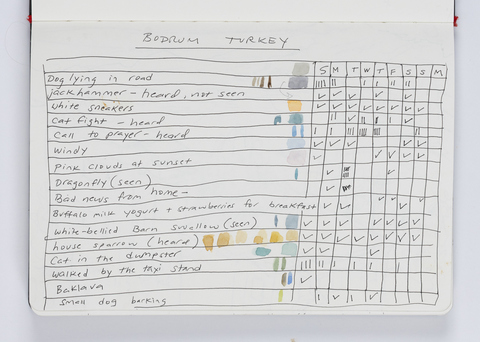 BODRUM TURKEY
S M T W T F S S M
Dog lying in road
jackhammer - heard, not seen
white sneakers
Cat fight - heard
Call to prayer - heard
Windy
Pink clouds at sunset
Dragonfly (seen)
Bad news from home -
Buffalo milk yogurt + strawberries for breakfast
White-bellied Barn Swallow (seen)
house sparrow (heard)
Cat in the dumpster
walked by the taxi stand
Baklava
Small dog barking